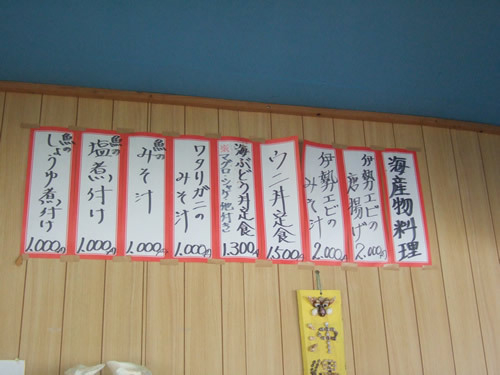 海産物料理
伊勢エビの
唐揚げ
2.000円
伊勢エビの
みそ汁
2.000円
ウニ丼定食
1.500
海ぶどう丼定食
※マグロ・シャケ・他付き
1.300円
ワタリガニの
みそ汁
1.000円
魚の
みそ汁
1.000円
魚の
塩煮付け
1.000円
魚の
しょうゆ煮付け
1.000円
沖